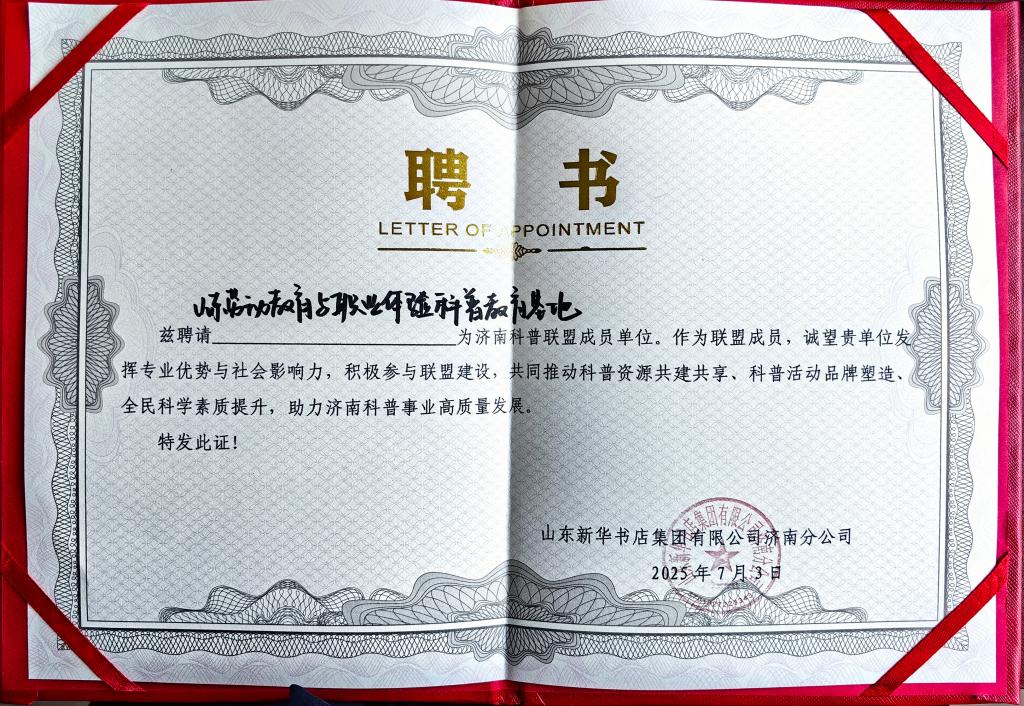 聘 书
LETTER OF APPOINTMENT
劳动教育与职业体验科普教育基地
兹聘请为济南科普联盟成员单位。作为联盟成员，诚望贵单位发
挥专业优势与社会影响力，积极参与联盟建设，共同推动科普资源共建共享、科普活动品牌塑造、
全民科学素质提升，助力济南科普事业高质量发展。
特发此证！
山东新华书店集团有限公司济南分公司
2025年7月3日